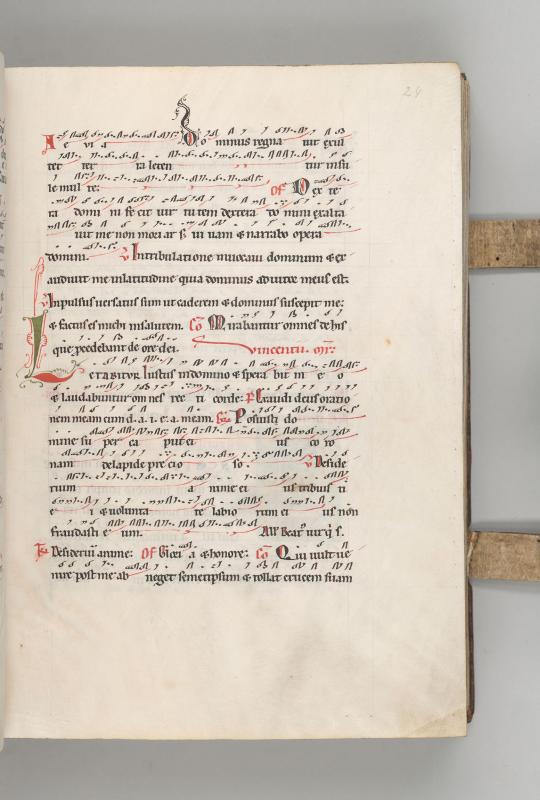 24
A e vi a Do minus regna vit exul
tet ter ra leten tur insu
le mul te: Of Dex te
ra domi ni fe cit vir tutem dextera do mini exalta
vit me non mori ar s; vi vam & narrabo opera
domini. V Intribulatione invocavi dominum & ex
audivit me inlatitudine quia dominus adiutor meus est.
V Inpulsus versatus sum ut caderem & dominus suscepit me:
& factus es michi insalutem. Co Mirabantur omnes de his
que procedebant de ore dei. Vincentii. mr.
Letabitur Iustus indomino & spera bit in e o
& laudabuntur om nes rec ti corde: Ps Exaudi deus oratio
nem meam cum d. a. i. e. a. meam. Posuisti do
mine su per ca put ei us co ro
nam de lapide pre cio so. V Deside
rium a nime ei us tribuis ti
e i & volunta te labio rum ei us non
fraudasti e um. Beat vir q s.
Desiderium anime: Of Glori a & honore: Co Qui vult ve
nire post me ab neget semetipsum & tollat crucem suam